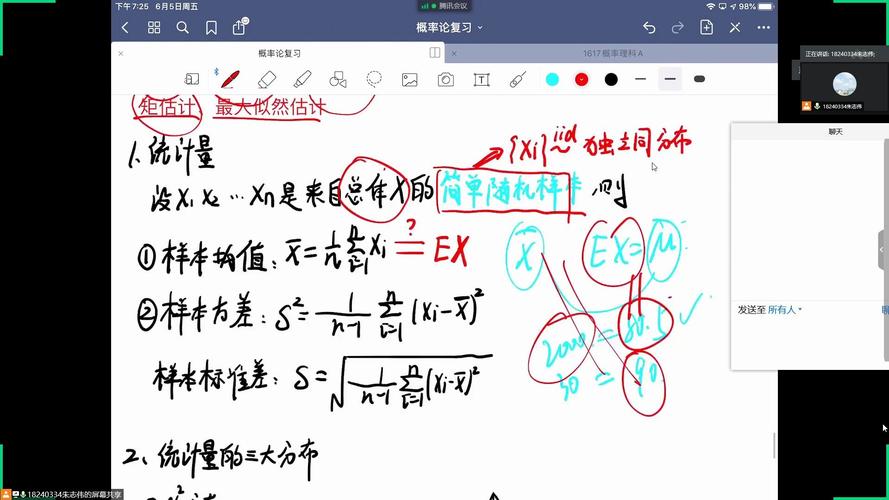 下午7:25 6月5日周五
腾讯会议
98%
概率论复习
概率论复习
1617概率理科A
正在讲话: 18240334朱志伟;
18240334朱志伟
聊天
矩估计 最大似然估计
1.统计量
{Xi} iid 独立同分布
设X1 X2 … Xn是来自总体X的简单随机样本 则
①样本均值: X̄=1/n ∑_{i=1}^{n} Xi =? EX
X̄ EX=μ
②样本方差: S²=1/(n-1) ∑_{i=1}^{n} (Xi-X̄)²
2000 = 80.5 ✓
样本标准差: S=√(1/(n-1) ∑_{i=1}^{n} (Xi-X̄)²)
30 = 90.
2、统计量的三大分布
发送至 所有人
18240334朱志伟的屏幕共享